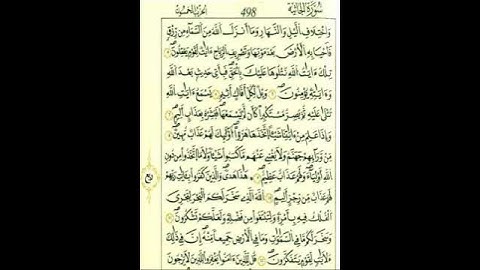 سُورَةُ الْجَاثِيَةِ
498
الحِزْبُ الْخَمْسُونَ
وَاخْتِلَٰفِ الَّيْلِ وَالنَّهَارِ وَمَآ أَنزَلَ اللَّهُ مِنَ السَّمَآءِ مِن رِّزْقٍ
فَأَحْيَا بِهِ الْأَرْضَ بَعْدَ مَوْتِهَا وَتَصْرِيفِ الرِّيَٰحِ ءَايَٰتٌ لِّقَوْمٍ يَعْقِلُونَ
تِلْكَ ءَايَٰتُ اللَّهِ نَتْلُوهَا عَلَيْكَ بِالْحَقِّ فَبِأَيِّ حَدِيثٍ بَعْدَ اللَّهِ
وَءَايَٰتِهِ يُؤْمِنُونَ وَيْلٌ لِّكُلِّ أَفَّاكٍ أَثِيمٍ يَسْمَعُ ءَايَٰتِ اللَّهِ
تُتْلَىٰ عَلَيْهِ ثُمَّ يُصِرُّ مُسْتَكْبِرًا كَأَن لَّمْ يَسْمَعْهَا فَبَشِّرْهُ بِعَذَابٍ أَلِيمٍ
وَإِذَا عَلِمَ مِنْ ءَايَٰتِنَا شَيْئًا اتَّخَذَهَا هُزُوًا أُوْلَٰٓئِكَ لَهُمْ عَذَابٌ مُّهِينٌ
مِّن وَرَآئِهِمْ جَهَنَّمُ وَلَا يُغْنِي عَنْهُم مَّا كَسَبُوا شَيْئًا وَلَا مَا اتَّخَذُوا مِن دُونِ
اللَّهِ أَوْلِيَآءَ وَلَهُمْ عَذَابٌ عَظِيمٌ هَٰذَا هُدًى وَالَّذِينَ كَفَرُوا بِـَٔايَٰتِ رَبِّهِمْ
لَهُمْ عَذَابٌ مِّن رِّجْزٍ أَلِيمٌ اللَّهُ الَّذِي سَخَّرَ لَكُمُ الْبَحْرَ لِتَجْرِيَ
الْفُلْكُ فِيهِ بِأَمْرِهِ وَلِتَبْتَغُوا مِن فَضْلِهِ وَلَعَلَّكُمْ تَشْكُرُونَ
وَسَخَّرَ لَكُم مَّا فِي السَّمَٰوَٰتِ وَمَا فِي الْأَرْضِ جَمِيعًا مِّنْهُ إِنَّ فِي ذَٰلِكَ
لَأَيَٰتٍ لِّقَوْمٍ يَتَفَكَّرُونَ قُل لِّلَّذِينَ ءَامَنُوا يَغْفِرُوا لِلَّذِينَ لَا يَرْجُونَ